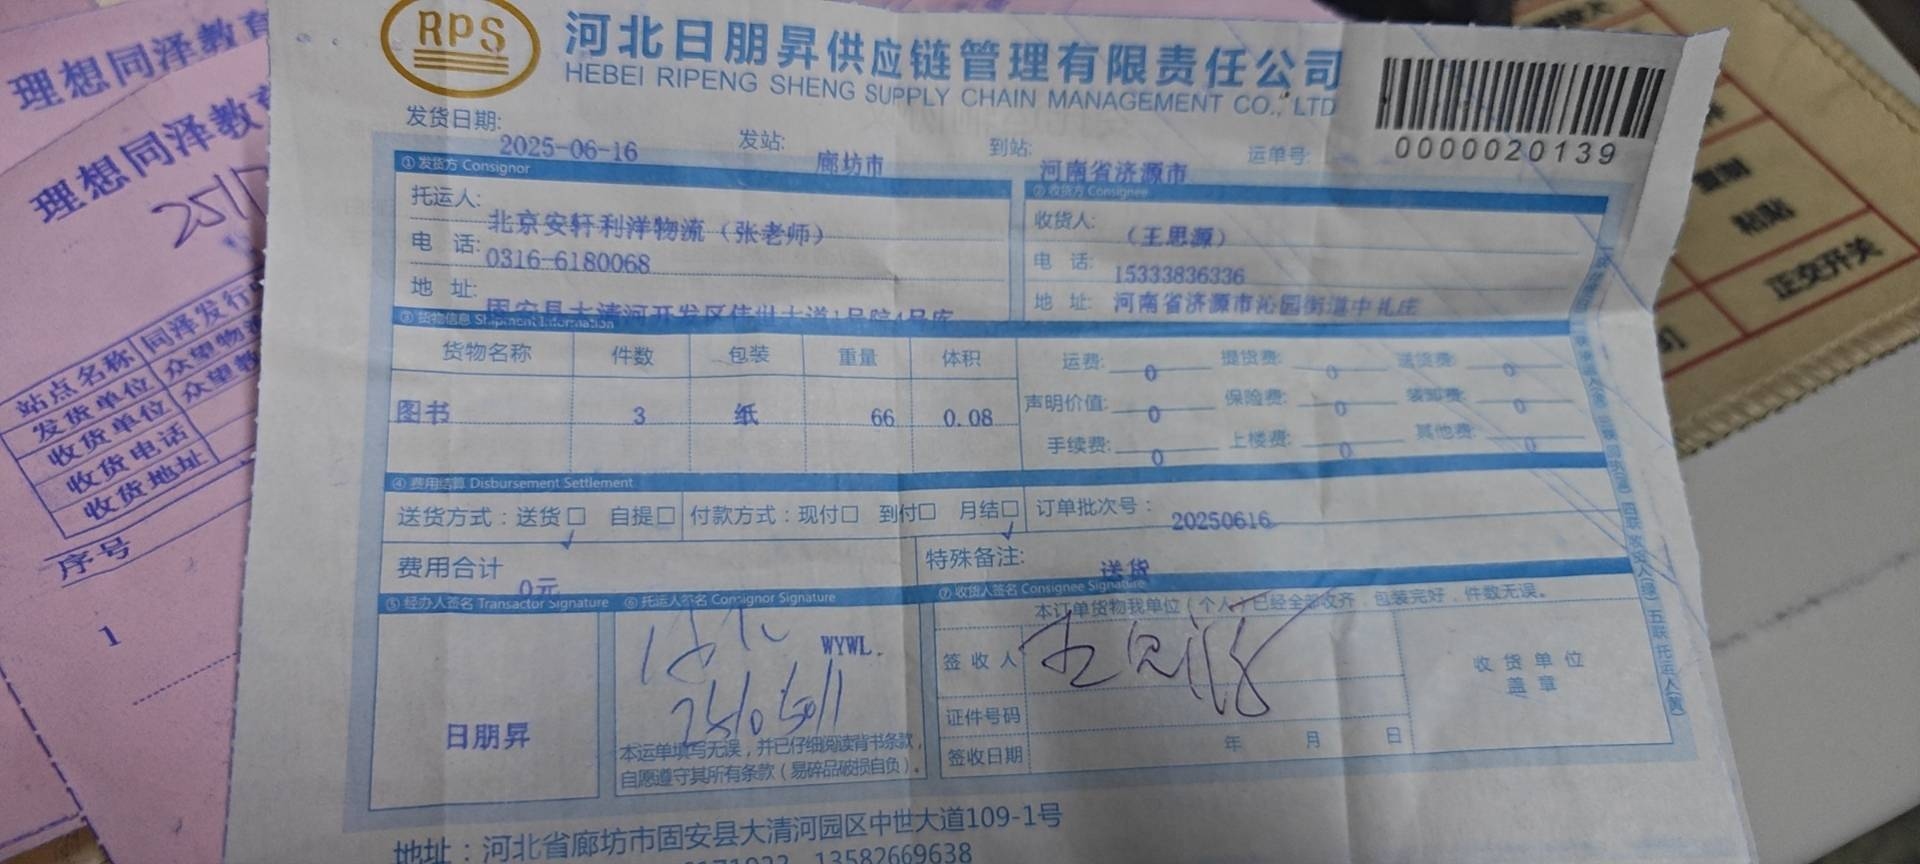 RPS
河北日朋昇供应链管理有限责任公司
HEBEI RIPENG SHENG SUPPLY CHAIN MANAGEMENT CO., LTD
0000020139
发货日期: 2025-06-16 发站: 廊坊市 到站: 河南省济源市 运单号:
① 发货方 Consignor
② 收货方 Consignee
托运人: 北京安轩利洋物流（张老师）
收货人: （王思源）
电 话: 0316-6180068
电 话: 15333836336
地 址: 固安县大清河开发区伟世大道1号院4号库
地 址: 河南省济源市沁园街道中扎庄
③ 货物信息 Shipment Information
货物名称 件数 包装 重量 体积
图书 3 纸 66 0.08
运费: 0 提货费: 0 送货费: 0
声明价值: 0 保险费: 0 装卸费: 0
手续费: 0 上楼费: 0 其他费: 0
④ 费用结算 Disbursement Settlement
送货方式：送货□ 自提□ 付款方式：现付□ 到付□ 月结□ 订单批次号： 20250616
✓ ✓
费用合计 0元
特殊备注: 送货
⑤ 经办人签名 Transactor Signature
⑥ 托运人签名 Consignor Signature
⑦ 收货人签名 Consignee Signature
本订单货物我单位（个人）已经全部收齐，包装完好，件数无误。
WYWL.
日朋昇
本运单填写无误，并已仔细阅读背书条款，
自愿遵守其所有条款（易碎品破损自负）。
签收人 王思源
证件号码
签收日期 年 月 日
收货单位
盖章
地址：河北省廊坊市固安县大清河园区中世大道109-1号
13582669638
理想同泽教育
理想同泽教育
站点名称 同泽发行
发货单位 众望物
收货单位 众望教
收货电话
收货地址
序号
1
粘贴
正交开关